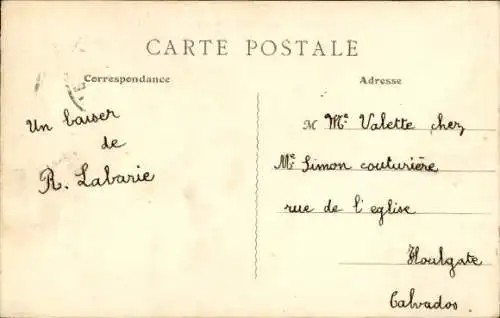 CARTE POSTALE
Correspondance
Adresse
Un baiser
de
R. Labarie
M Me Valette chez
Me Simon couturière
rue de l'eglise
Houlgate
Calvados.